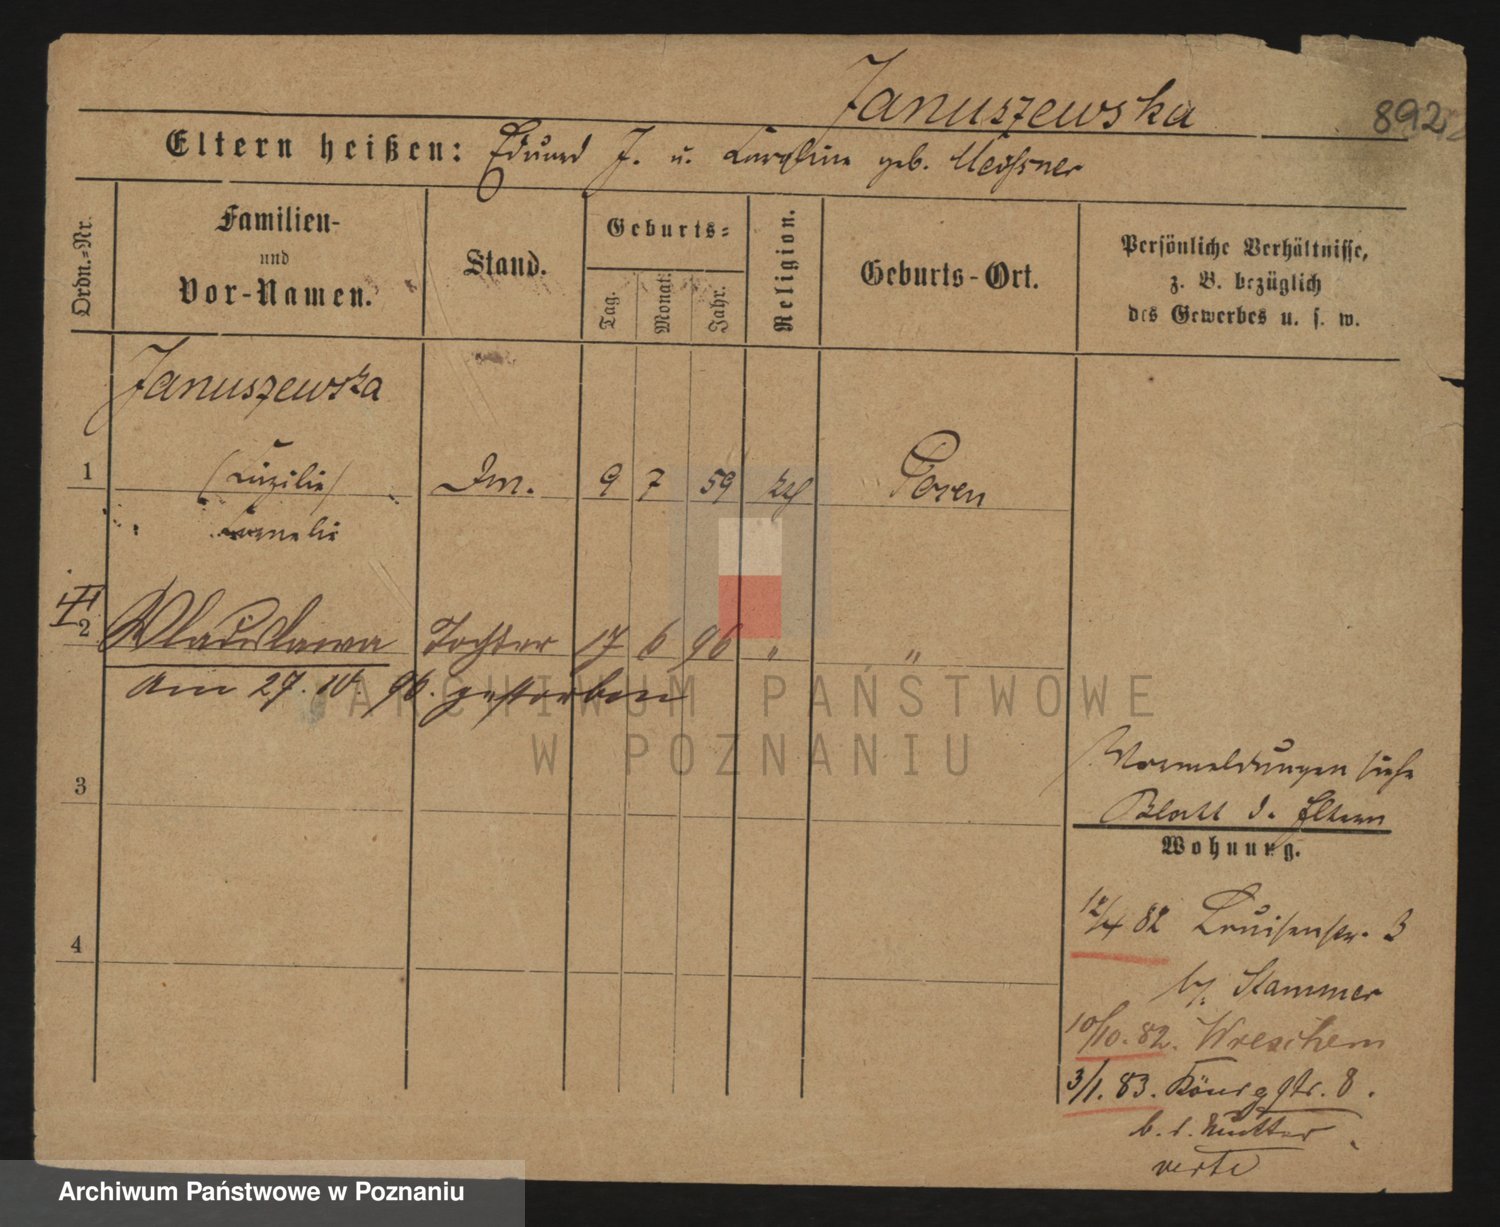 Januszewska
892
Eltern heißen: Eduard J. u. Caroline geb. Meissner
Ordn.-Nr.
Familien-
und
Vor-Namen.
Stand.
Geburts-
Tag.
Monat.
Jahr.
Religion.
Geburts-Ort.
Persönliche Verhältnisse,
z. B. bezüglich
des Gewerbes u. s. w.
Januszewska
1 (Cäzilie) 9 7 59 Posen
Cornelie
2 Wladislawa Tochter 17 6 96 " "
am 27. 10. 96. gestorben
ARCHIWUM PAŃSTWOWE
W POZNANIU
3
Vormeldungen siehe
Blatt d. Eltern
Wohnung.
12/4 82 Louisenstr. 3
by. Stammer
4
10/10. 82. Wreschen
3/1. 83. Königstr. 8.
b. d. Mutter
verte
Archiwum Państwowe w Poznaniu